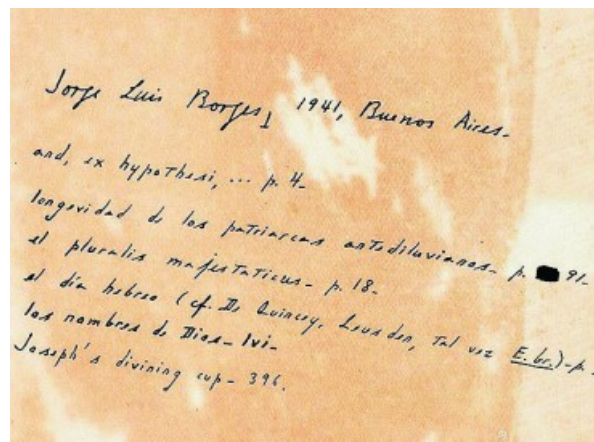 Jorge Luis Borges, 1941, Buenos Aires.
and, ex hypothesi, ... p. 4.
longevidad de los patriarcas antediluvianos. p. 91.
el pluralis majestaticus. p. 18.
el día hebreo (cf. De Quincey, Leusden, tal vez E. br.) - p.
los nombres de Dios. lvi.
Joseph's divining cup. 396.